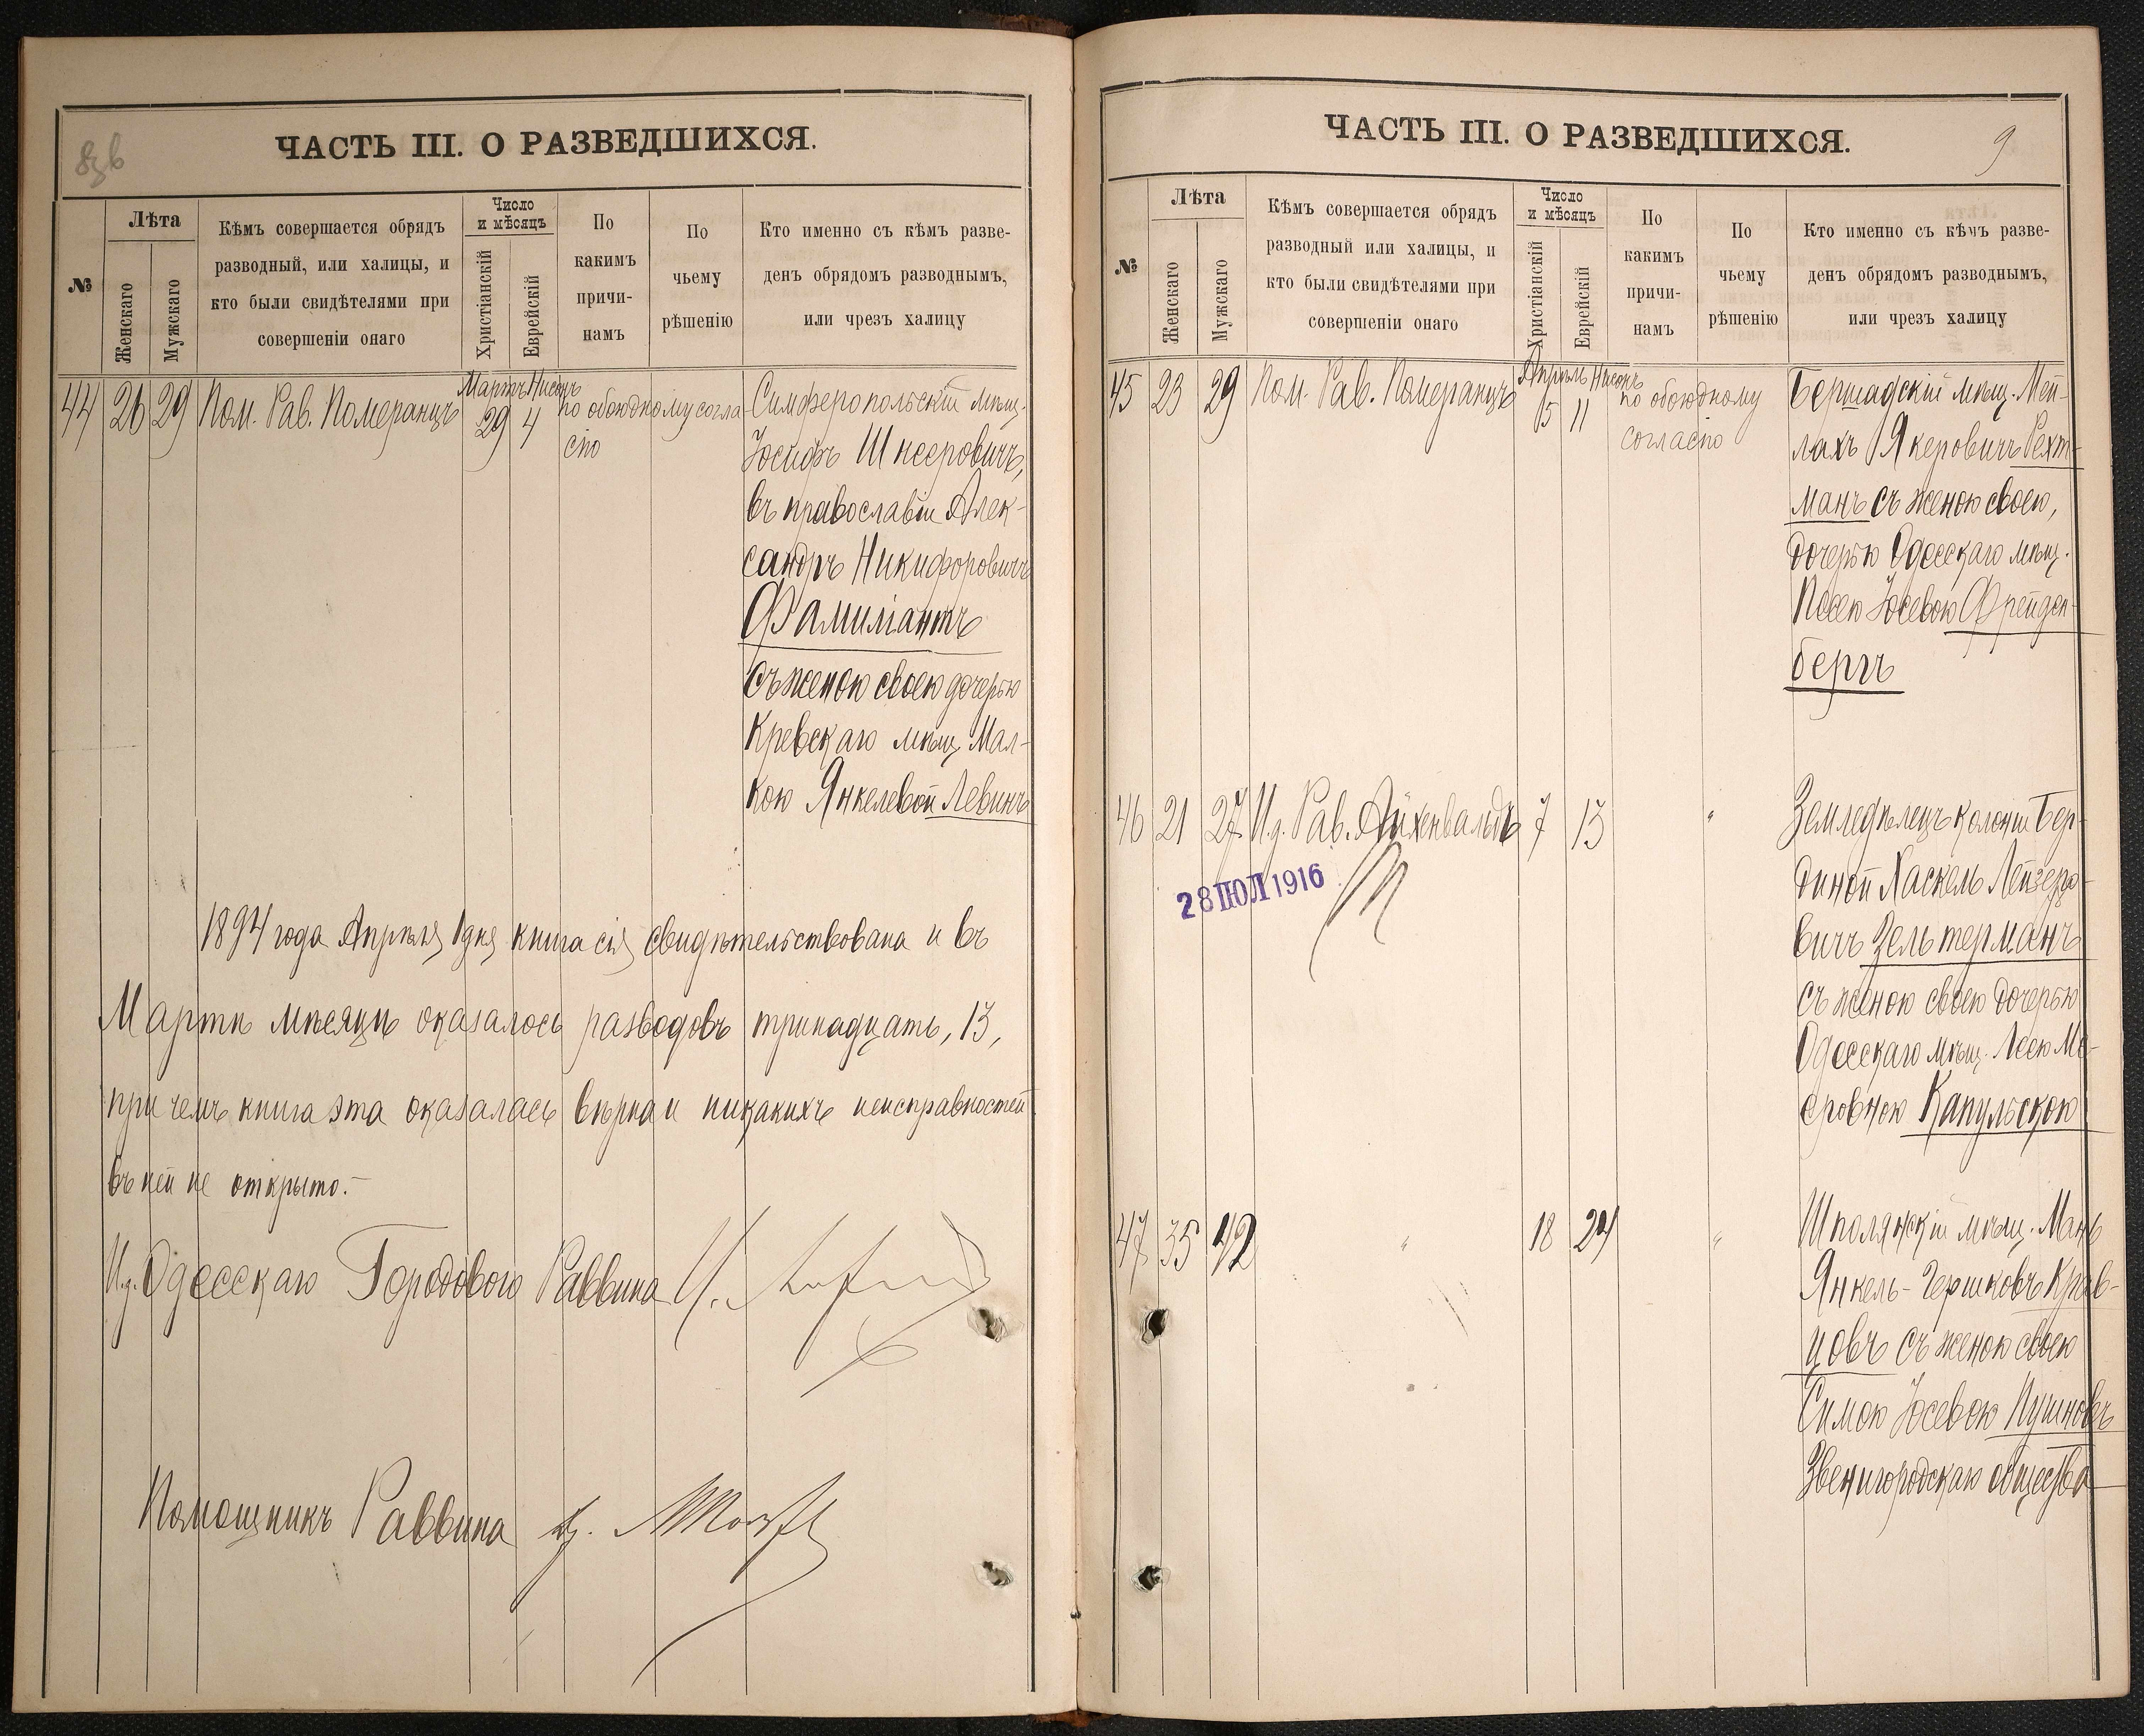 ЧАСТЬ III. О РАЗВЕДШИХСЯ.
№
Лѣта
Женскаго
Мужскаго
Кѣмъ совершается обрядъ
разводный, или халицы, и
кто были свидѣтелями при
совершеніи онаго
Число
и мѣсяцъ
Христіанскій
Еврейскій
По
какимъ
причи-
намъ
По
чьему
рѣшенію
Кто именно съ кѣмъ разве-
денъ обрядомъ разводнымъ,
или чрезъ халицу
44 26 29 Пом. Рав. Померанцъ
Мартъ Нисонъ
29 4
по обоюдному согла
сію
Симферопольскій мѣщ.
Іосифъ Шнееровичъ,
въ православіи Алек-
сандръ Никифоровичъ
Фамиліантъ
съ женою своею дочерью
Кревскаго мѣщ. Мал-
кою Янкелевой Левинъ
1894 года Апрѣля 1 дня книга сія свидѣтельствована и въ
Мартѣ мѣсяцѣ оказалось разводовъ тринадцать, 13,
при чемъ книга эта оказалась вѣрна и никакихъ неисправностей
въ ней не открыто.-
И.д. Одесскаго Городового Раввина
Помощникъ Раввина
ЧАСТЬ III. О РАЗВЕДШИХСЯ.
9
№
Лѣта
Женскаго
Мужскаго
Кѣмъ совершается обрядъ
разводный или халицы, и
кто были свидѣтелями при
совершеніи онаго
Число
и мѣсяцъ
Христіанскій
Еврейскій
По
какимъ
причи-
намъ
По
чьему
рѣшенію
Кто именно съ кѣмъ разве-
денъ обрядомъ разводнымъ,
или чрезъ халицу
45 23 29 Пом. Рав. Померанцъ
Апрѣль Нисонъ
5 11
по обоюдному
согласію
Бершадскій мѣщ. Мей-
лахъ Якеровичъ Рехт-
манъ съ женою своею,
дочерью Одесскаго мѣщ.
Песею Іосевою Фрейден-
бергъ
46 21 27 И.д. Рав. Айхенвальдъ 7 13 "
28 ІЮЛ 1916
Земледѣлецъ колоніи Бер-
диной Хаскель Лейзеро-
вичъ Зельтерманъ
съ женою своею дочерью
Одесскаго мѣщ. Леею Ме-
еровною Капульскою
47 35 42 " 18 24 "
Шполянскій мѣщ. Мань
Янкель-Гершковъ Крав-
цовъ съ женою своею
Симою Іосевою Пушновъ
Звенигородскаго общества